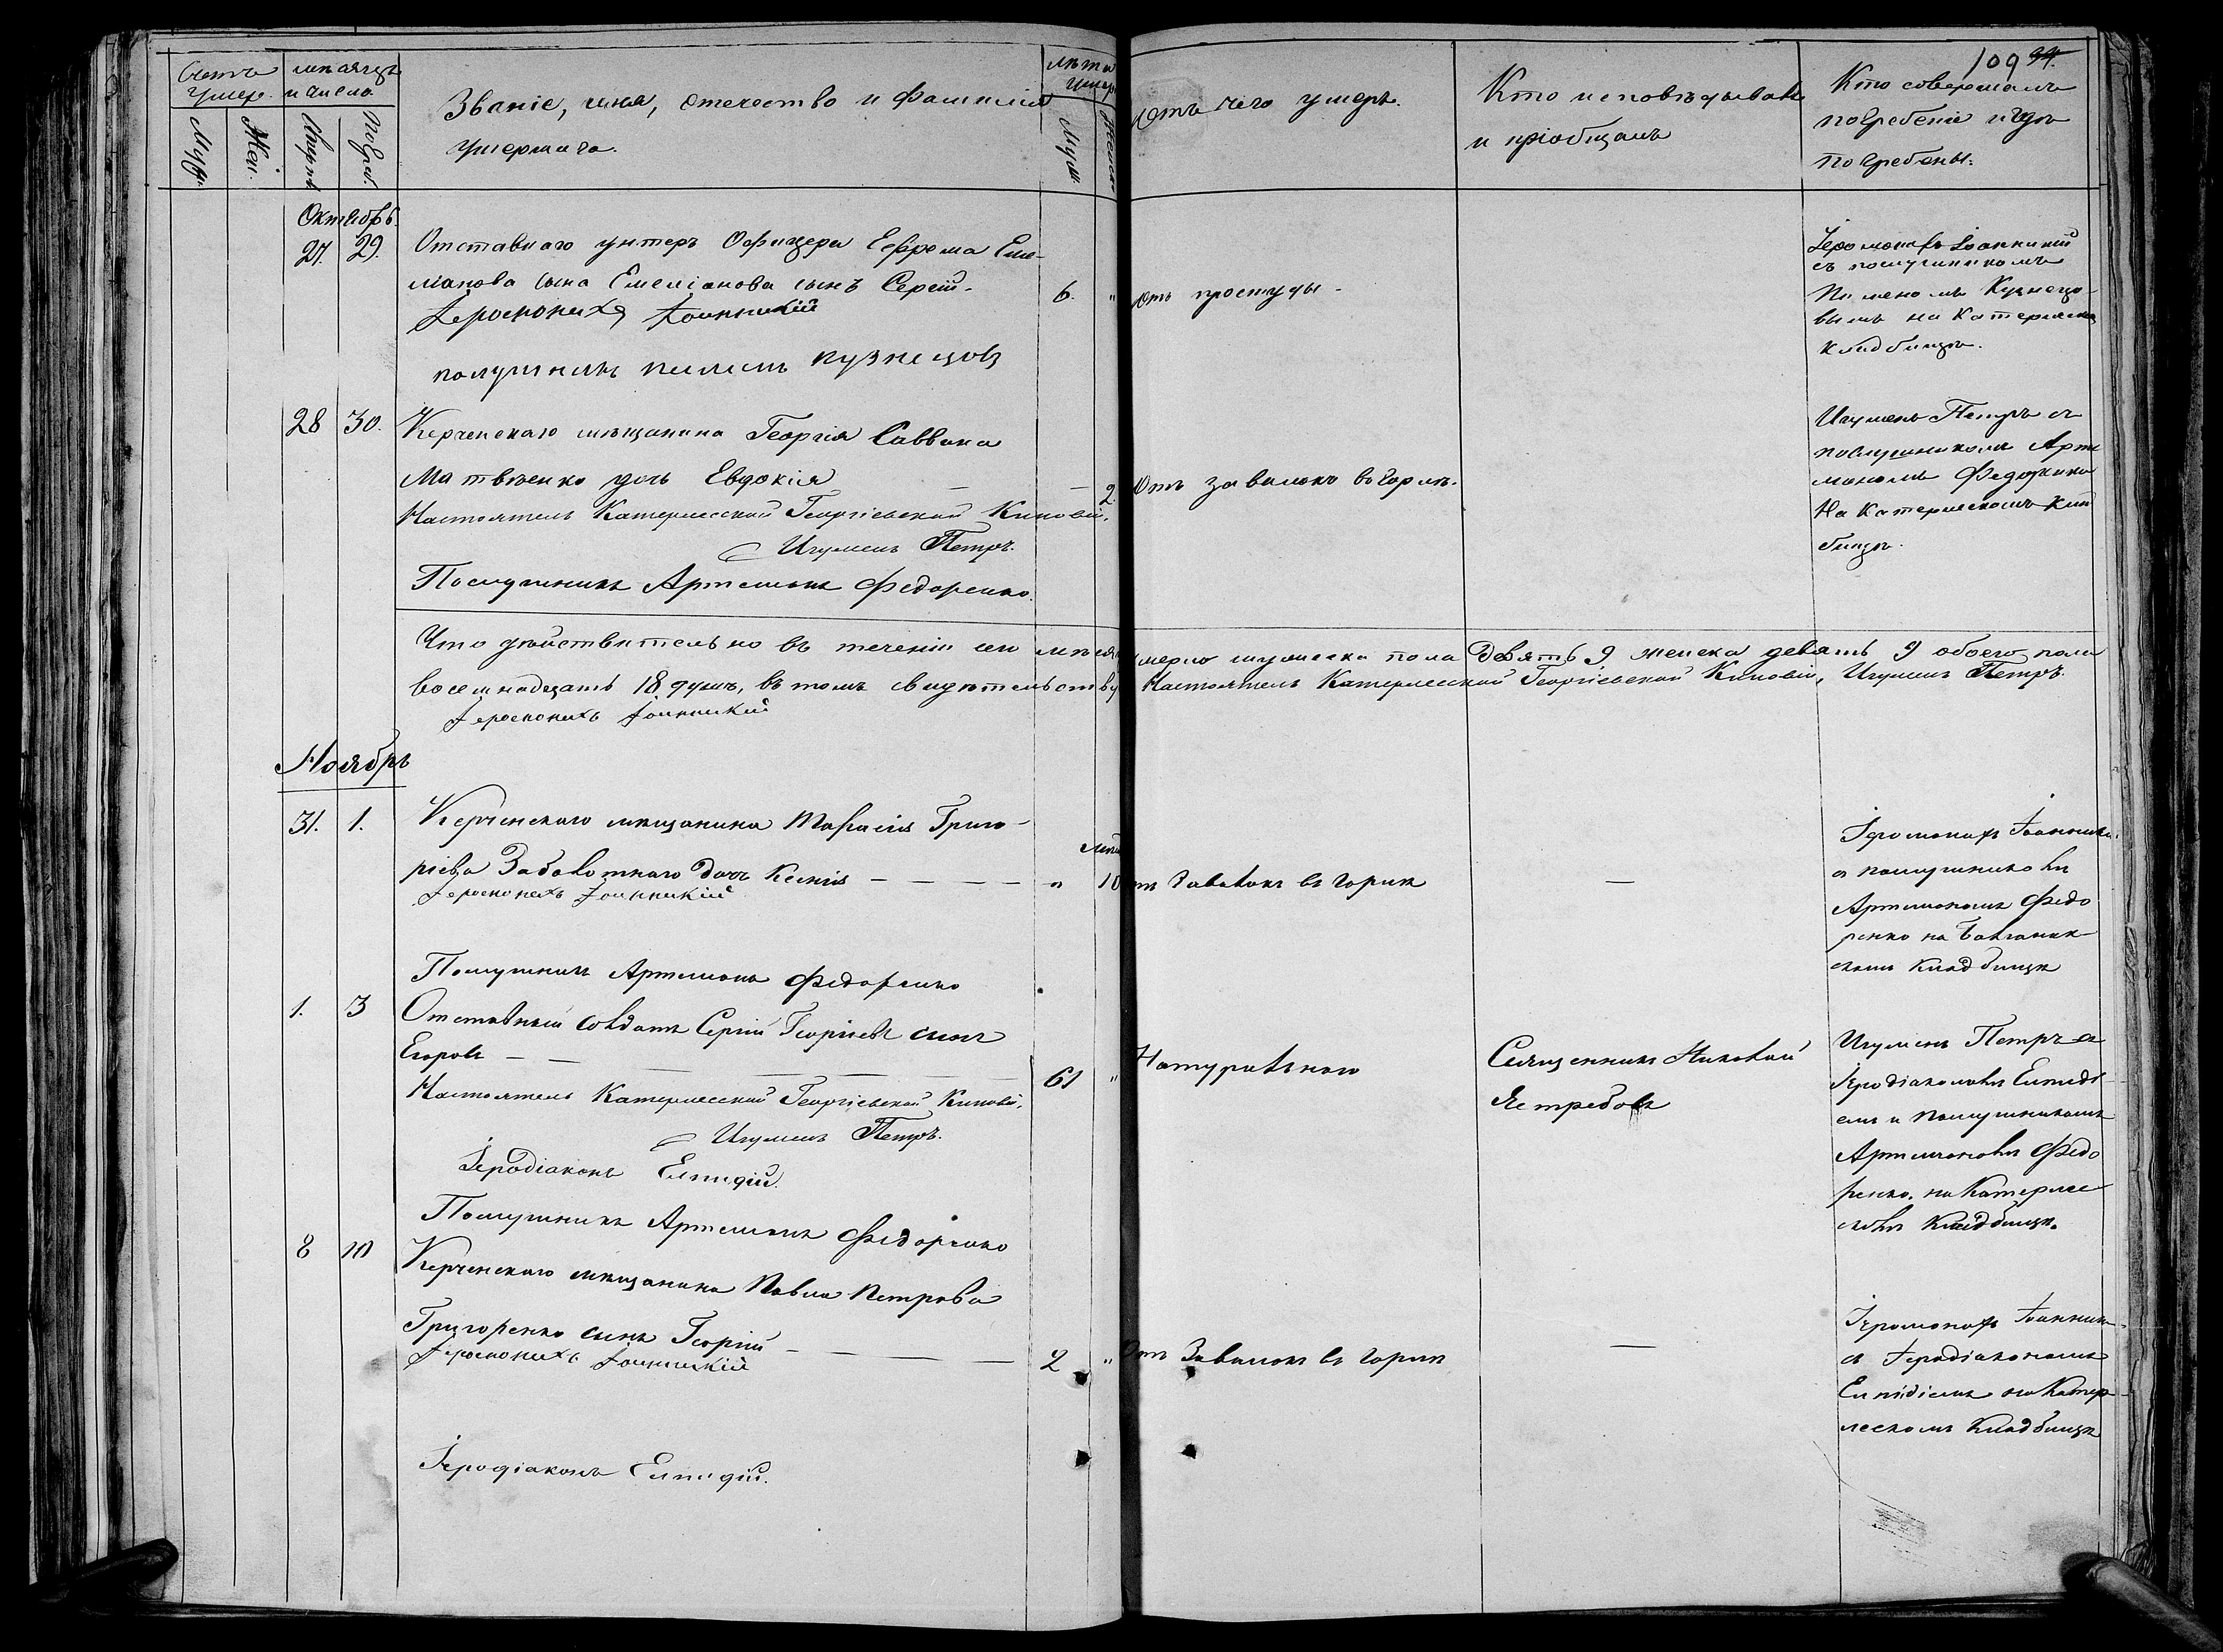 Счетъ умер.
Муж.
Жен.
мѣсяцъ и число
Смерть
Погреб.
Званіе, имя, отечество и фамилія
умершаго.
лѣта умер.
Муж.
Женск
Отъ чего умеръ.
Кто исповѣдывалъ
и пріобщалъ
109 94.
Кто совершалъ
погребеніе и гдѣ
погребены.
Октябрь.
27. 29.
Отставнаго унтеръ Офицера Ефрема Еме-
лianова сына Емеліанова сынъ Сергій. 6. "
Іеромонахъ Іоанникій
послушникъ Пименъ Кузнецовъ
Отъ простуды.
Іеромонахъ Іоанникій
съ послушникомъ
Пименомъ Кузнецо-
вымъ на Катерлеск
кладбищѣ.
28 30.
Керченскаго мѣщанина Георгія Саввина
Матвѣенко дочь Евдокія — — 2.
Настоятель Катерлесской Георгіевской Киновіи,
Игуменъ Петръ.
Послушникъ Артемонъ Федоренко.
Отъ завалокъ въ горлѣ.
Игуменъ Петръ съ
послушникомъ Арте
мономъ Федоренко
На Катерлескомъ клад
бищѣ.
Что дѣйствительно въ теченіи сего мѣсяца умерло мужеска пола Девять 9 женска девять 9 обоего пола
восемнадцать 18 душъ, въ томъ свидѣтельствую Настоятель Катерлесской Георгіевской Киновіи, Игуменъ Петръ.
Іеромонахъ Іоанникій
Ноябрь
31. 1.
Керченскаго мѣщанина Тарасія Григо-
ріева Заболотнаго дочь Ксенія — — — — " 10
Іеромонахъ Іоанникій
Послушникъ Артемонъ Федоренко
отъ Завалокъ въ горлѣ
—
Іеромонахъ Іоанники
съ послушникомъ
Артемономъ Федо
ренко на
скомъ Кладбищѣ
1. 3
Отставный солдатъ Сергій Георгіевъ сынъ
Егоровъ — — — — — 61 "
Настоятель Катерлесской Георгіевской Киновіи,
Игуменъ Петръ.
Іеродіаконъ Елпидій.
Послушникъ Артемонъ Федоренко
Натуральною
Священникъ Николай
Ястребовъ
Игуменъ Петръ съ
Іеродіакономъ Елпиді-
емъ и послушникомъ
Артемономъ Федо
ренко. на Катерле-
скомъ Кладбищѣ.
8 10
Керченскаго мѣщанина Павла Петрова
Григоренко сынъ Георгій — — — — 2 "
Іеромонахъ Іоанникій
Іеродіаконъ Елпидій.
Отъ Завалокъ въ горлѣ
—
Іеромонахъ Іоанники-
съ Іеродіакономъ
Елпидіемъ на Катер-
лескомъ Кладбищѣ